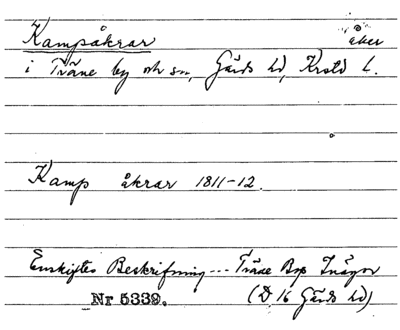 Kampåkrar åker
i Träne by och sn, Gärds hd, Krstd l.
Kamp åkrar 1811-12.
Enskiftes Beskrifning --- Träne Bys Inägor
Nr 5339. (D 16 Gärds hd)